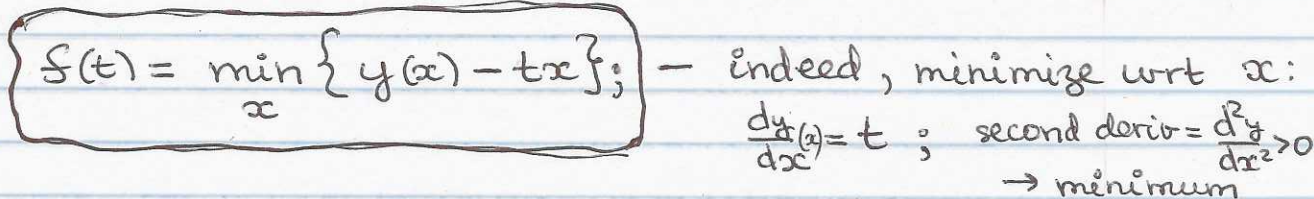 f(t) = min { y(x) - tx }; - indeed, minimize wrt x:
x
dy/dx (x) = t ; second deriv = d²y/dx² > 0
→ minimum